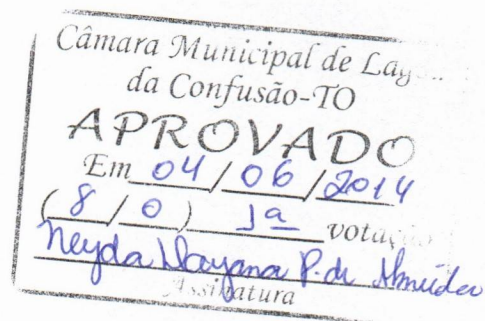 Câmara Municipal de
da Confusão-TO
APROVADO
Em 04/06/2014
(8/0) 1ª votação
Neyda Dayana P. de Almeida
Assinatura